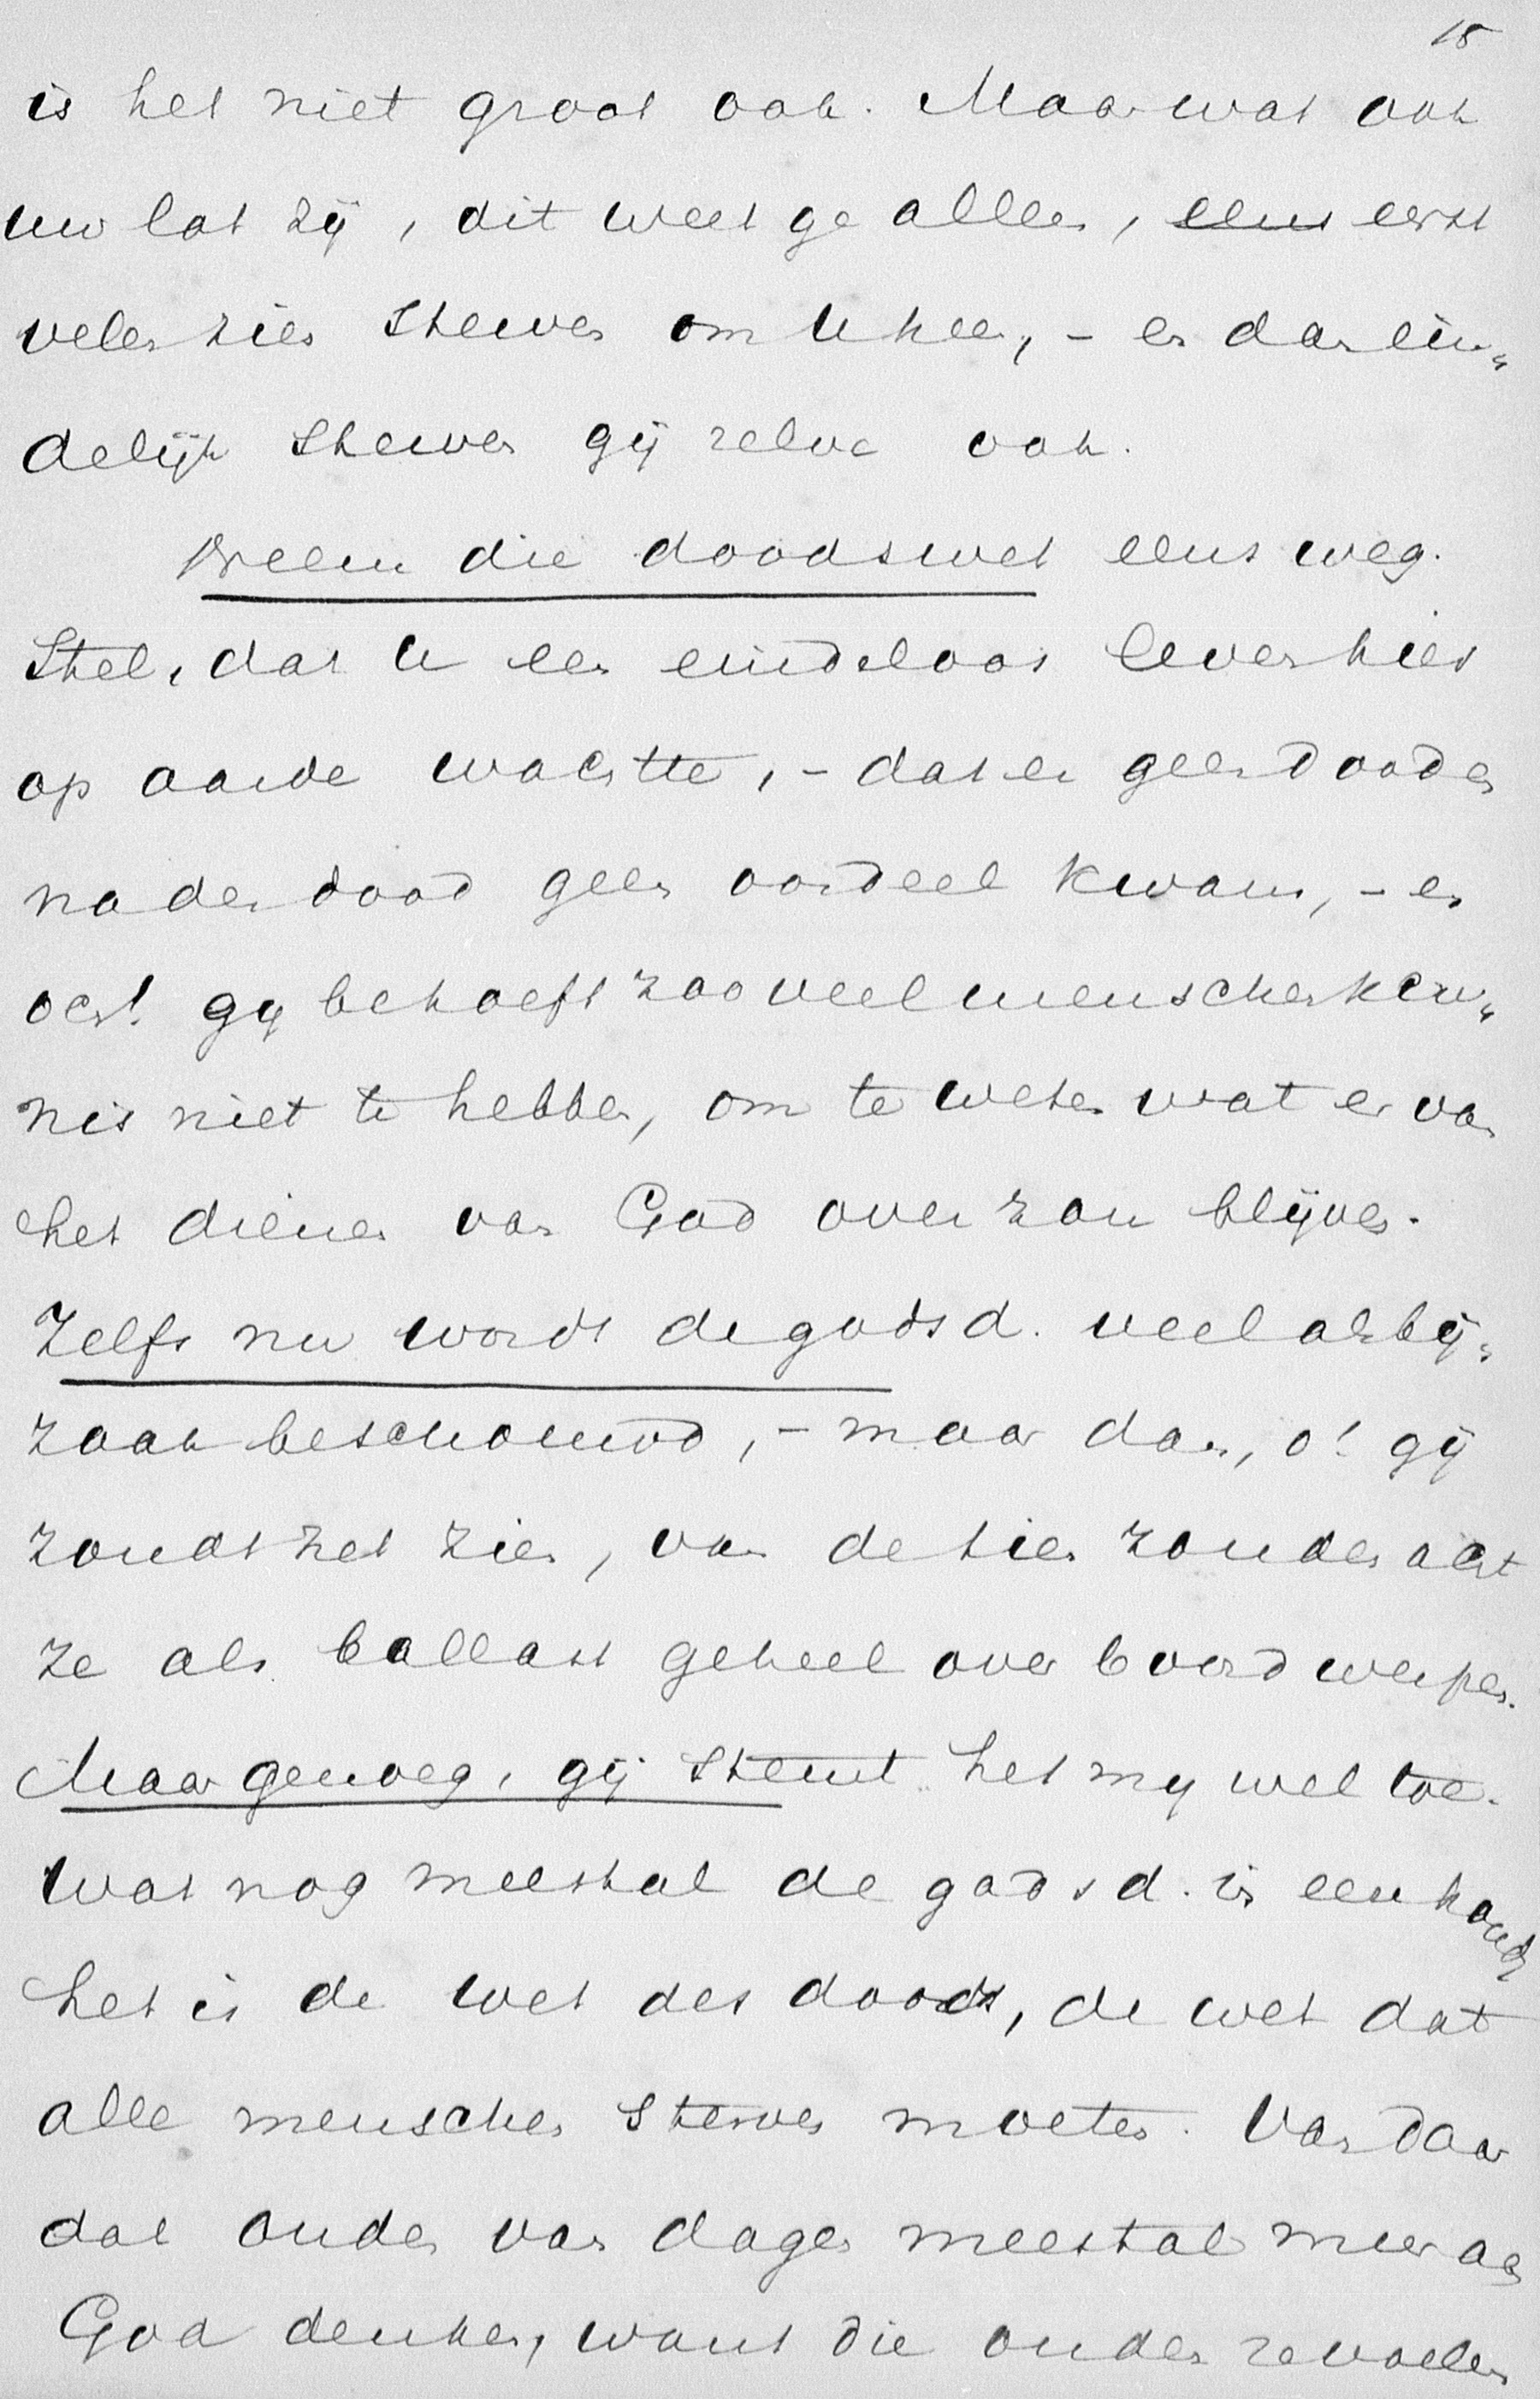 18
is het niet groot ook. Maar wat ook
uw lot zij, dit weet ge allen, eens eerst
velen zien sterven om U heen, - en dan ein„
delijk sterven gij zelve ook.
Neem die doodswet eens weg.
Stel, dat U een eindeloos leven hier
op aarde wachtte, - dat er geen dood en
na den dood geen oordeel kwam, - en
och! gij behoeft zooveel menschenken„
nis niet te hebben, om te weten wat er van
het dienen van God over zou blijven.
Zelfs nu wordt de godsd. veel als bij„
zaak beschouwd, - maar dan, o! gij
zoudt het zien, van de tien zouden acht
ze als ballast geheel over boord werpen.
Maar genoeg, gij stemt het mij wel toe.
Wat nog meestal de godsd. in eere houdt
het is de wet des doods, de wet dat
alle menschen sterven moeten. Van daar
dat ouden van dagen meestal meer aan
God denken, want die ouden gevoelen